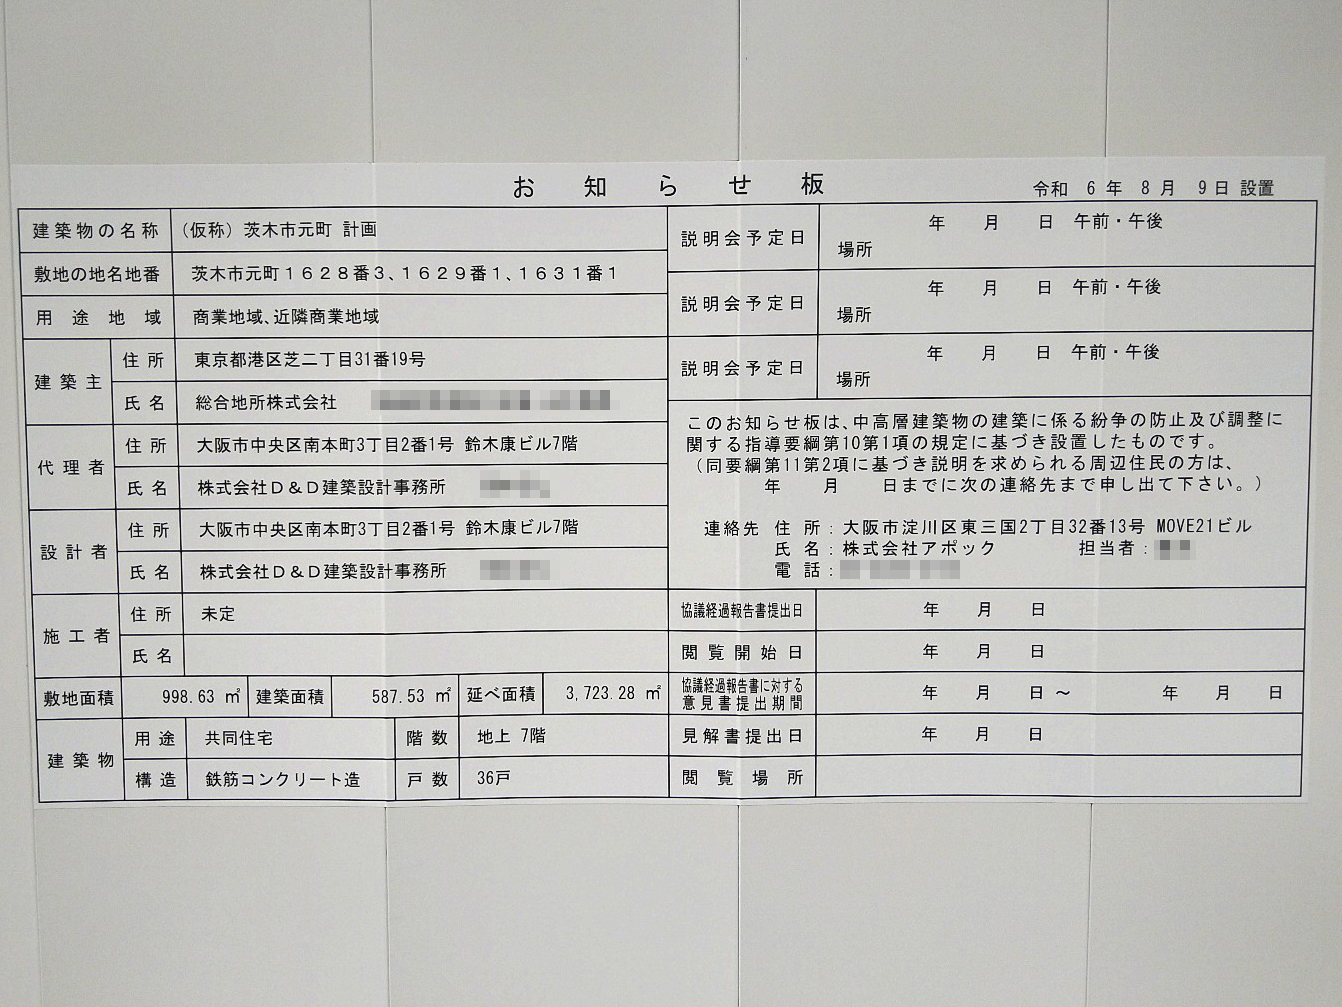 お知らせ板
令和 6年 8月 9日 設置
建築物の名称 (仮称) 茨木市元町 計画
敷地の地名地番 茨木市元町1628番3、1629番1、1631番1
用途地域 商業地域、近隣商業地域
建築主 住所 東京都港区芝二丁目31番19号
氏名 総合地所株式会社
代理者 住所 大阪市中央区南本町3丁目2番1号 鈴木康ビル7階
氏名 株式会社D&D建築設計事務所
設計者 住所 大阪市中央区南本町3丁目2番1号 鈴木康ビル7階
氏名 株式会社D&D建築設計事務所
施工者 住所 未定
氏名
敷地面積 998.63 ㎡ 建築面積 587.53 ㎡ 延べ面積 3,723.28 ㎡
建築物 用途 共同住宅 階数 地上 7階
構造 鉄筋コンクリート造 戸数 36戸
説明会予定日 年 月 日 午前・午後
場所
説明会予定日 年 月 日 午前・午後
場所
説明会予定日 年 月 日 午前・午後
場所
このお知らせ板は、中高層建築物の建築に係る紛争の防止及び調整に
関する指導要綱第10第1項の規定に基づき設置したものです。
(同要綱第11第2項に基づき説明を求められる周辺住民の方は、
年 月 日までに次の連絡先まで申し出て下さい。)
連絡先 住所:大阪市淀川区東三国2丁目32番13号 MOVE21ビル
氏名:株式会社アポック 担当者:
電話:
協議経過報告書提出日 年 月 日
閲覧開始日 年 月 日
協議経過報告書に対する
意見書提出期間 年 月 日 ~ 年 月 日
見解書提出日 年 月 日
閲覧場所